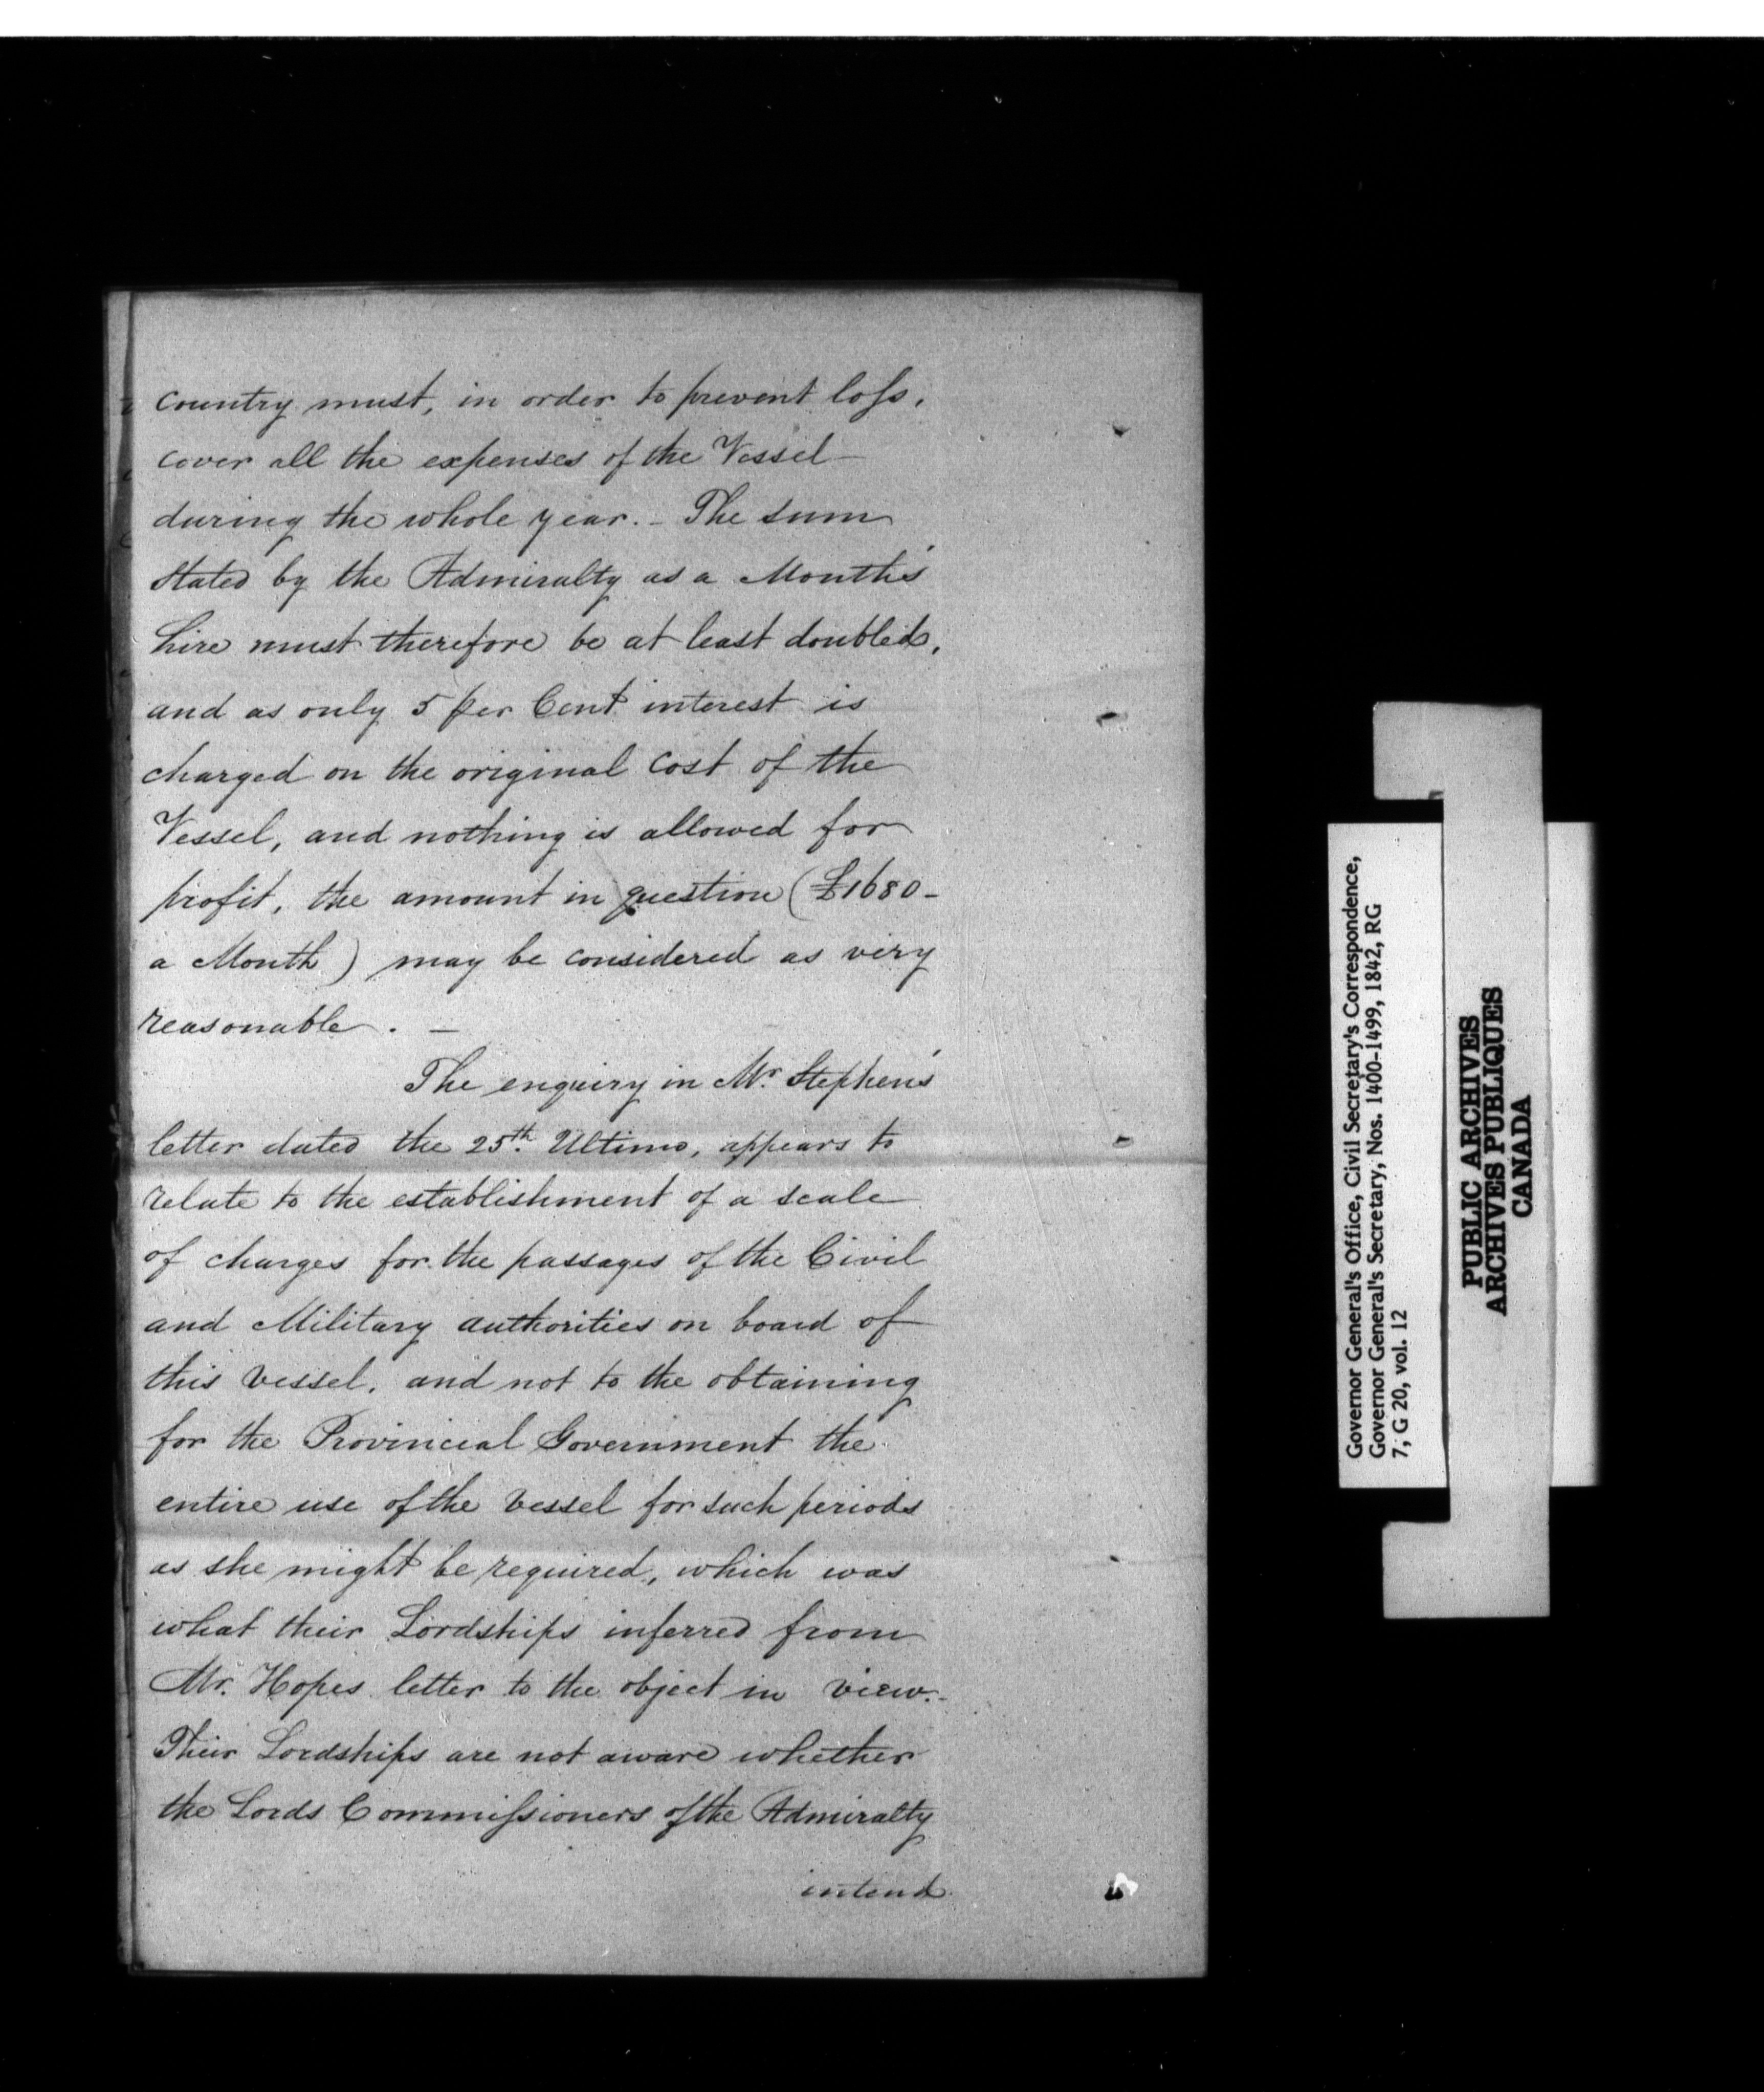 country must, in order to prevent loſs,
cover all the expenses of the Vessel
during the whole year. - The sum
stated by the Admiralty as a Month's
hire must therefore be at least doubled,
and as only 5 per Cent interest is
charged on the original Cost of the
Vessel, and nothing is allowed for
profit, the amount in question (£1680-
a Month) may be considered as very
reasonable. —
The enquiry in Mr. Stephen's
letter dated the 25th. Ultimo, appears to
relate to the establishment of a scale
of charges for the passages of the Civil
and Military authorities on board of
this Vessel, and not to the obtaining
for the Provincial Government the
entire use of the Vessel for such periods
as she might be required, which was
what their Lordships inferred from
Mr. Hopes letter to the object in view.-
Their Lordships are not aware whether
the Lords Commiſsioners of the Admiralty
intend
Governor General's Office, Civil Secretary's Correspondence,
Governor General's Secretary, Nos. 1400-1499, 1842, RG
7, G 20, vol. 12
PUBLIC ARCHIVES
ARCHIVES PUBLIQUES
CANADA